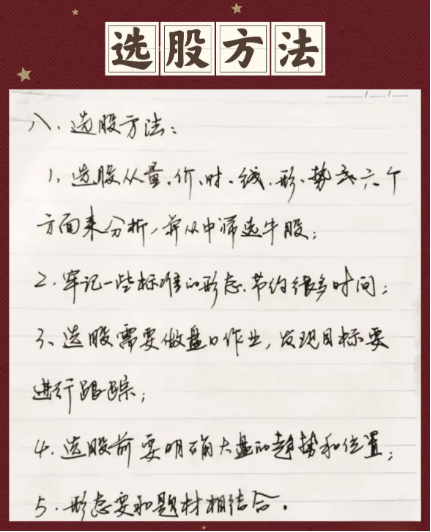 选股方法
八、选股方法：
1、选股从量、价、时、线、形、势或六个
方面来分析，并从中筛选牛股；
2、牢记一些标准的形态、节约很多时间；
3、选股需要做盘口作业，发现目标要
进行跟踪；
4、选股前要明确大盘的趋势和位置；
5、形态要和题材相结合。